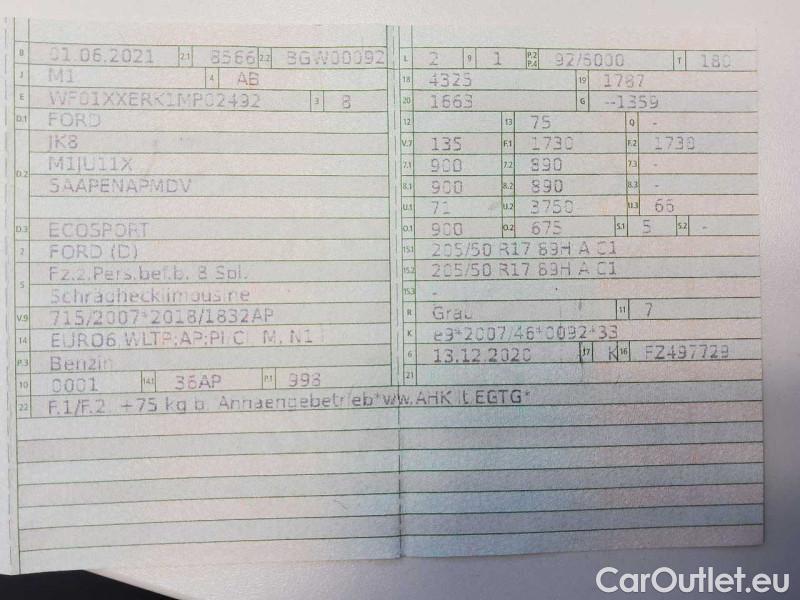 B 01.06.2021 2.1 8566 2.2 BGW00092
J M1 4 AB
E WF01XXERK1MP02492 3 8
D.1 FORD
JK8
D.2 M1JU11X
SAAPENAPMDV
D.3 ECOSPORT
2 FORD (D)
5 Fz.z.Pers.bef.b. 8 Spl.
Schräghecklimousine
V.9 715/2007*2018/1832AP
14 EURO6,WLTP;AP;PI/CI, M, N1 I
P.3 Benzin
10 0001 14.1 36AP P.1 998
22 F.1/F.2: +75 kg b. Anhaengebetrieb*ww.AHK lt.EGTG*
L 2 9 1 P.2 P.4 92/6000 T 180
18 4325 19 1787
20 1663 G --1359
12 13 75 Q -
V.7 135 F.1 1730 F.2 1730
7.1 900 7.2 890 7.3 -
8.1 900 8.2 890 8.3 -
U.1 71 U.2 3750 U.3 66
O.1 900 O.2 675 S.1 5 S.2 -
15.1 205/50 R17 89H A C1
15.2 205/50 R17 89H A C1
15.3 -
R Grau 11 7
K e9*2007/46*0092*33
6 13.12.2020 17 K 16 FZ497729
21
CarOutlet.eu